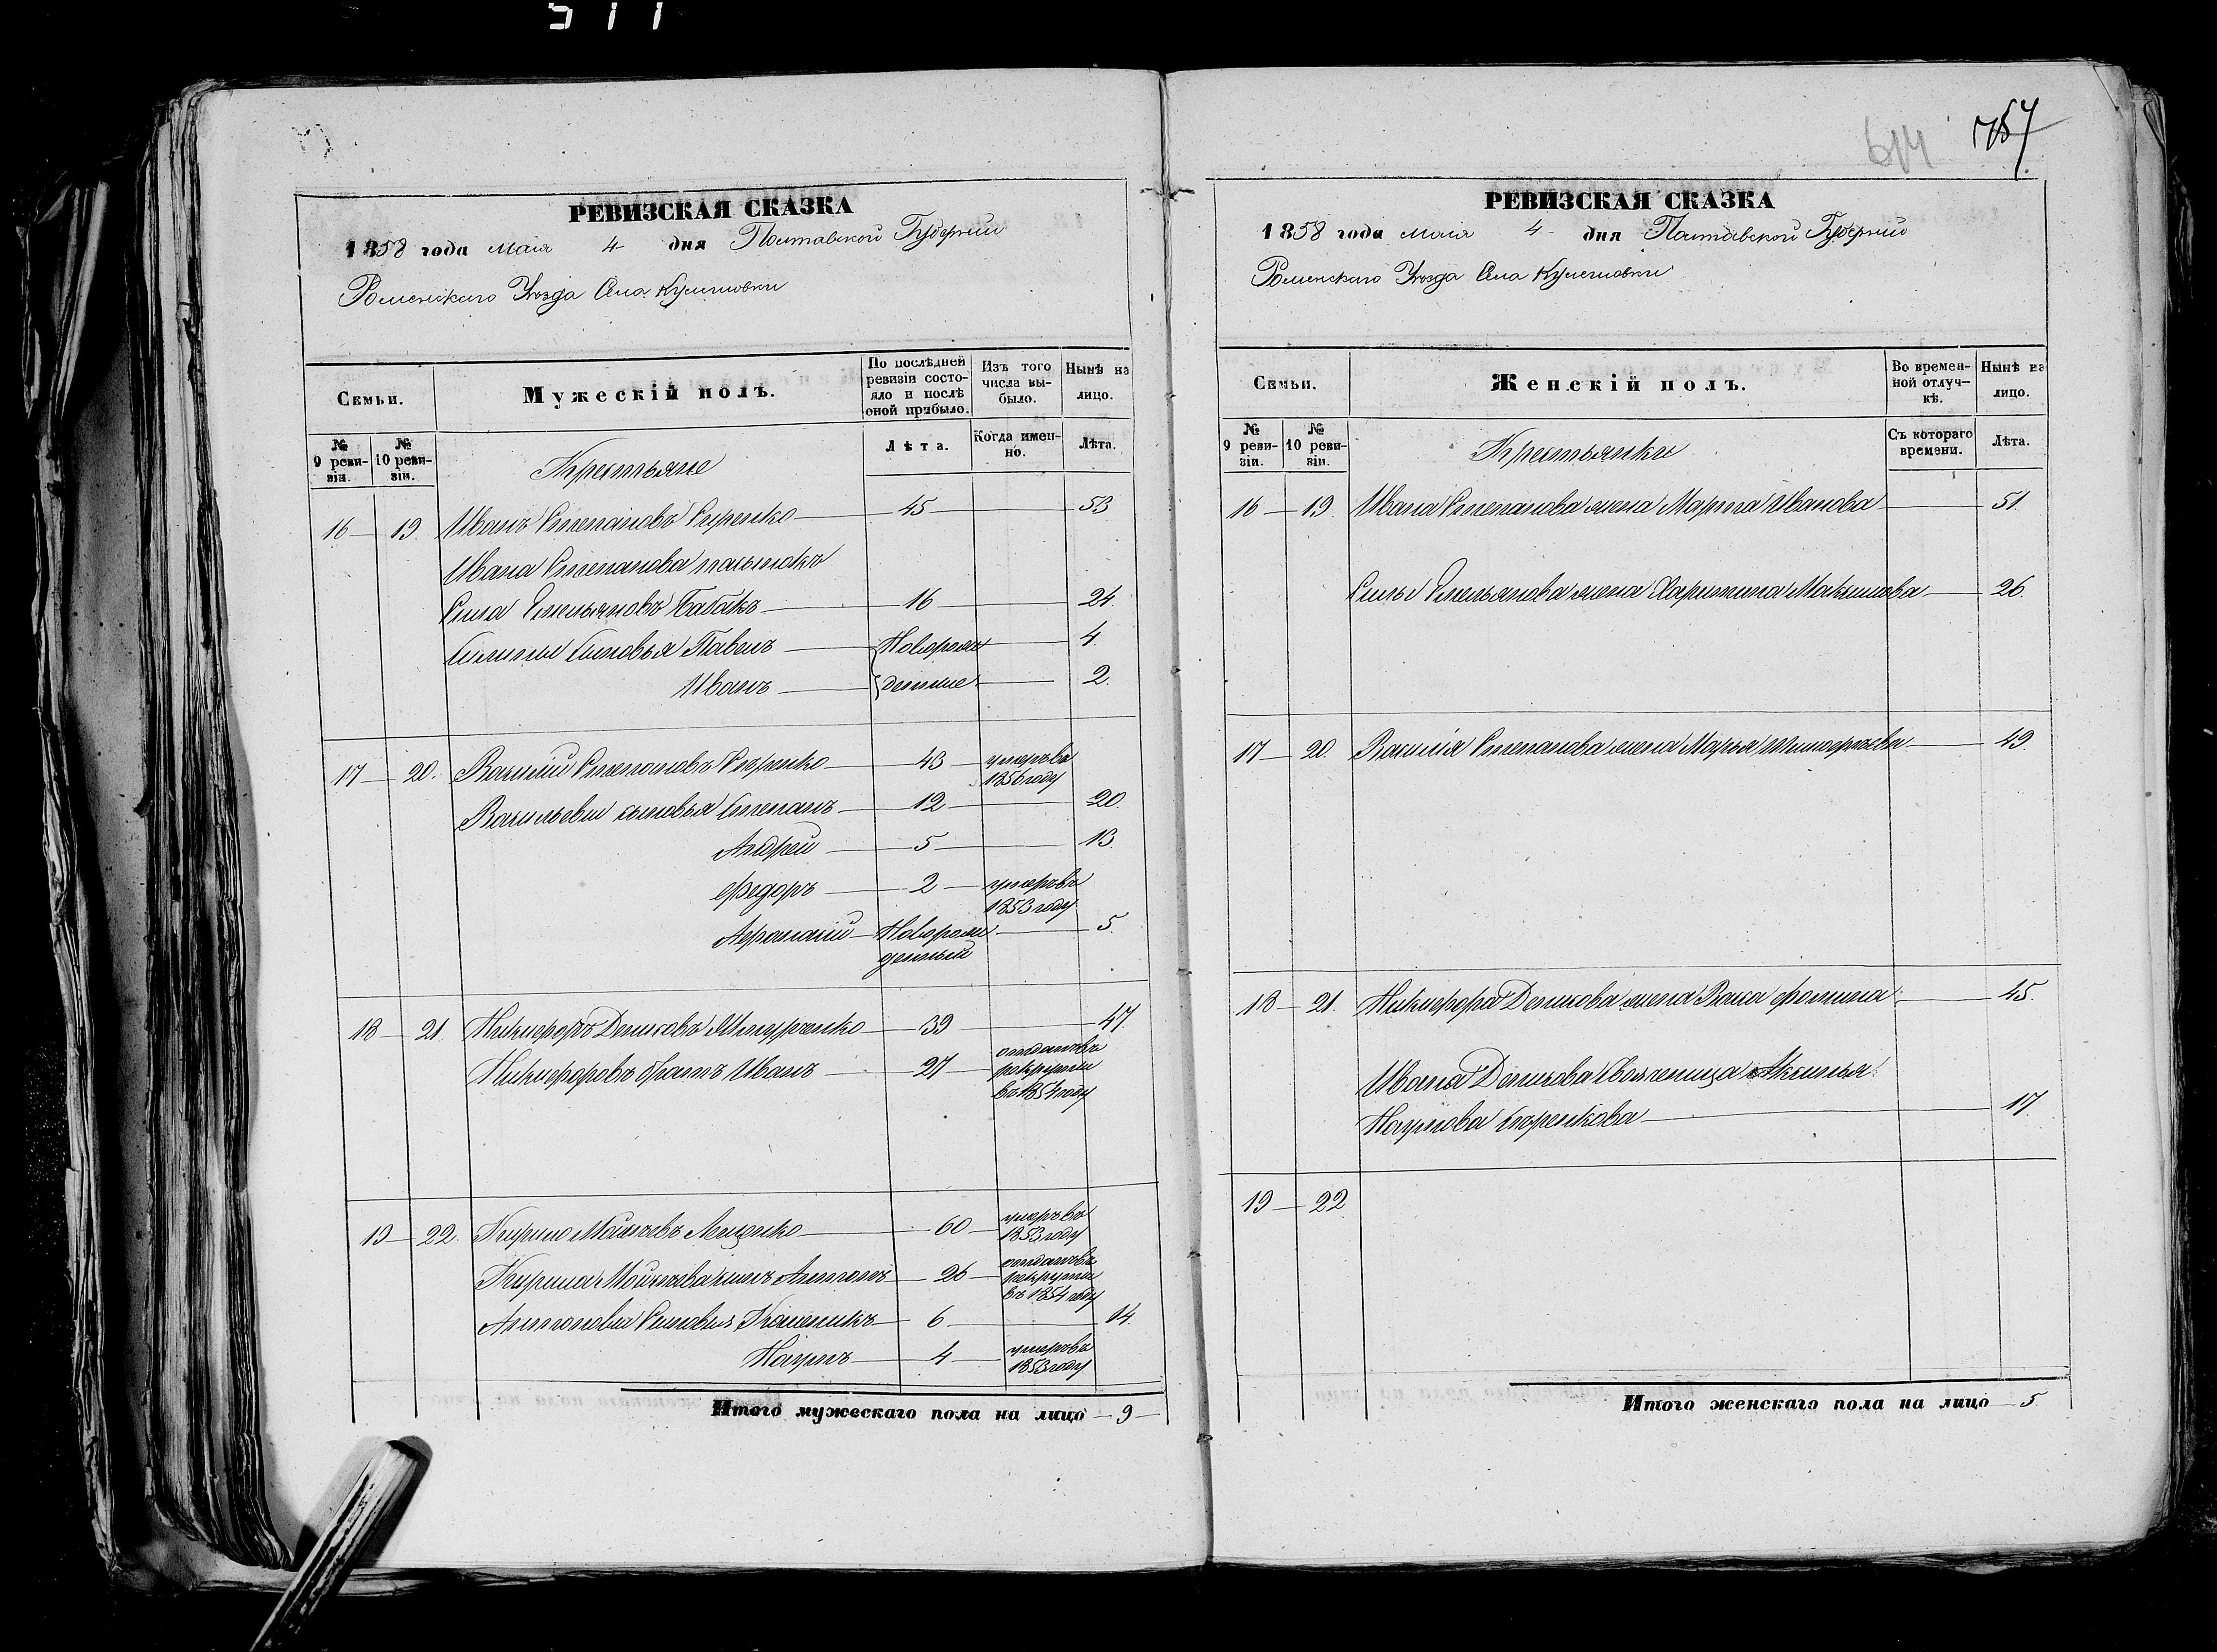 511
РЕВИЗСКАЯ СКАЗКА
1858 года мaiя 4 дня Полтавской Губернии
Роменскаго Уѣзда Села Кулешовки
Семьи.
Мужескій полъ.
По послѣдней ревизіи состояло и послѣ оной прибыло.
Изъ того числа выбыло.
Нынѣ на лицо.
№ 9 ревизіи.
№ 10 ревизіи.
Крестьяне
Лѣта.
Когда именно.
Лѣта.
16 19. Иванъ Степановъ Сиренко 45 53
Ивана Степанова пасынокъ
Сила Емельяновъ Бабакъ 16 24.
Силины сыновья Павелъ Новорож 4.
Иванъ денные 2.
17 20. Василій Степановъ Сиренко 43 умеръ въ 1856 году
Васильевы сыновья Степанъ 12 20.
Андрей 5 13
Федоръ 2 умеръ въ 1853 году
Афанасій Новорожденный 5.
18 21. Никифоръ Денисовъ 39 47.
Никифоровъ братъ Иванъ 27 отданъ въ рекруты въ 1854 году
19 22. Кирило Мойсеевъ Лещенко 60 умеръ въ 1853 году
Кирила Мойсеева сынъ Антонъ 26 отданъ въ рекруты въ 1854 году
Антоновы Сыновья 6 14.
Наумъ 4 умеръ въ 1853 году
Итого мужескаго пола на лицо 9
614 757
РЕВИЗСКАЯ СКАЗКА
1858 года мaiя 4 дня Полтавской Губернии
Роменскаго Уѣзда Села Кулешовки
Семьи.
Женскій полъ.
Во временной отлучкѣ.
Нынѣ на лицо.
№ 9 ревизіи.
№ 10 ревизіи.
Крестьянки
Съ котораго времени.
Лѣта.
16 19. Ивана Степанова жена Марта Иванова 51.
Силы Емельянова жена Харитина Максимова 26.
17 20. Василія Степанова жена Марья Тимофѣева 49.
18 21. Никифора Денисова жена Васса Фомина 45.
Ивана Денисова свояченица Аксинья
Наумова 17.
19 22
Итого женскаго пола на лицо 5.